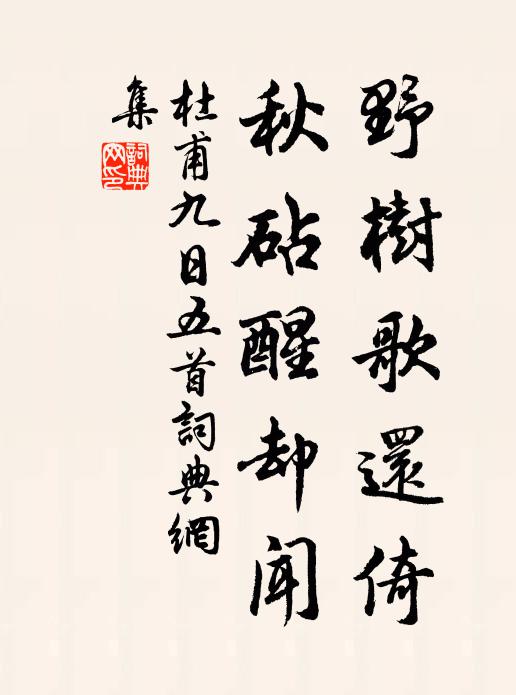 野樹歌還倚
秋砧醒却聞
杜甫九日五首詞典網
集
詞典網印